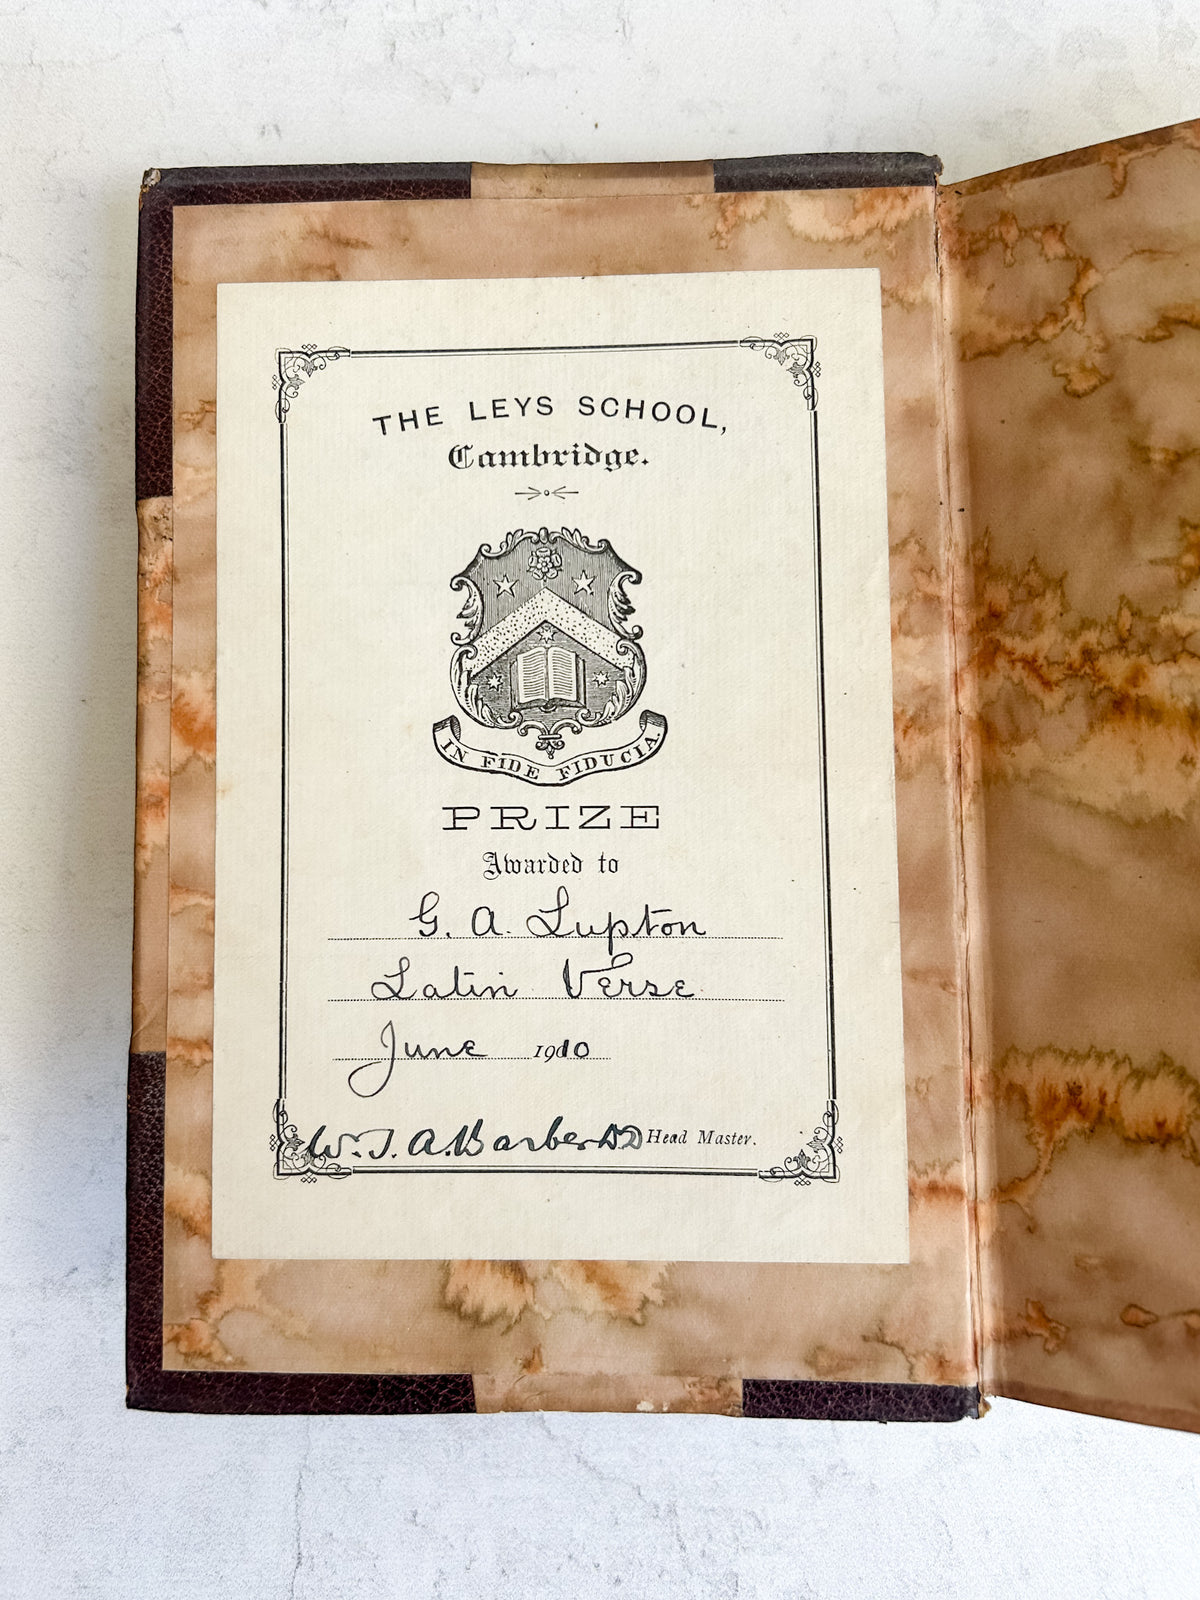 THE LEYS SCHOOL,
Cambridge.
IN FIDE FIDUCIA.
PRIZE
Awarded to
G. A. Lupton
Latin Verse
June 1910
W. T. A. Barber DD Head Master.